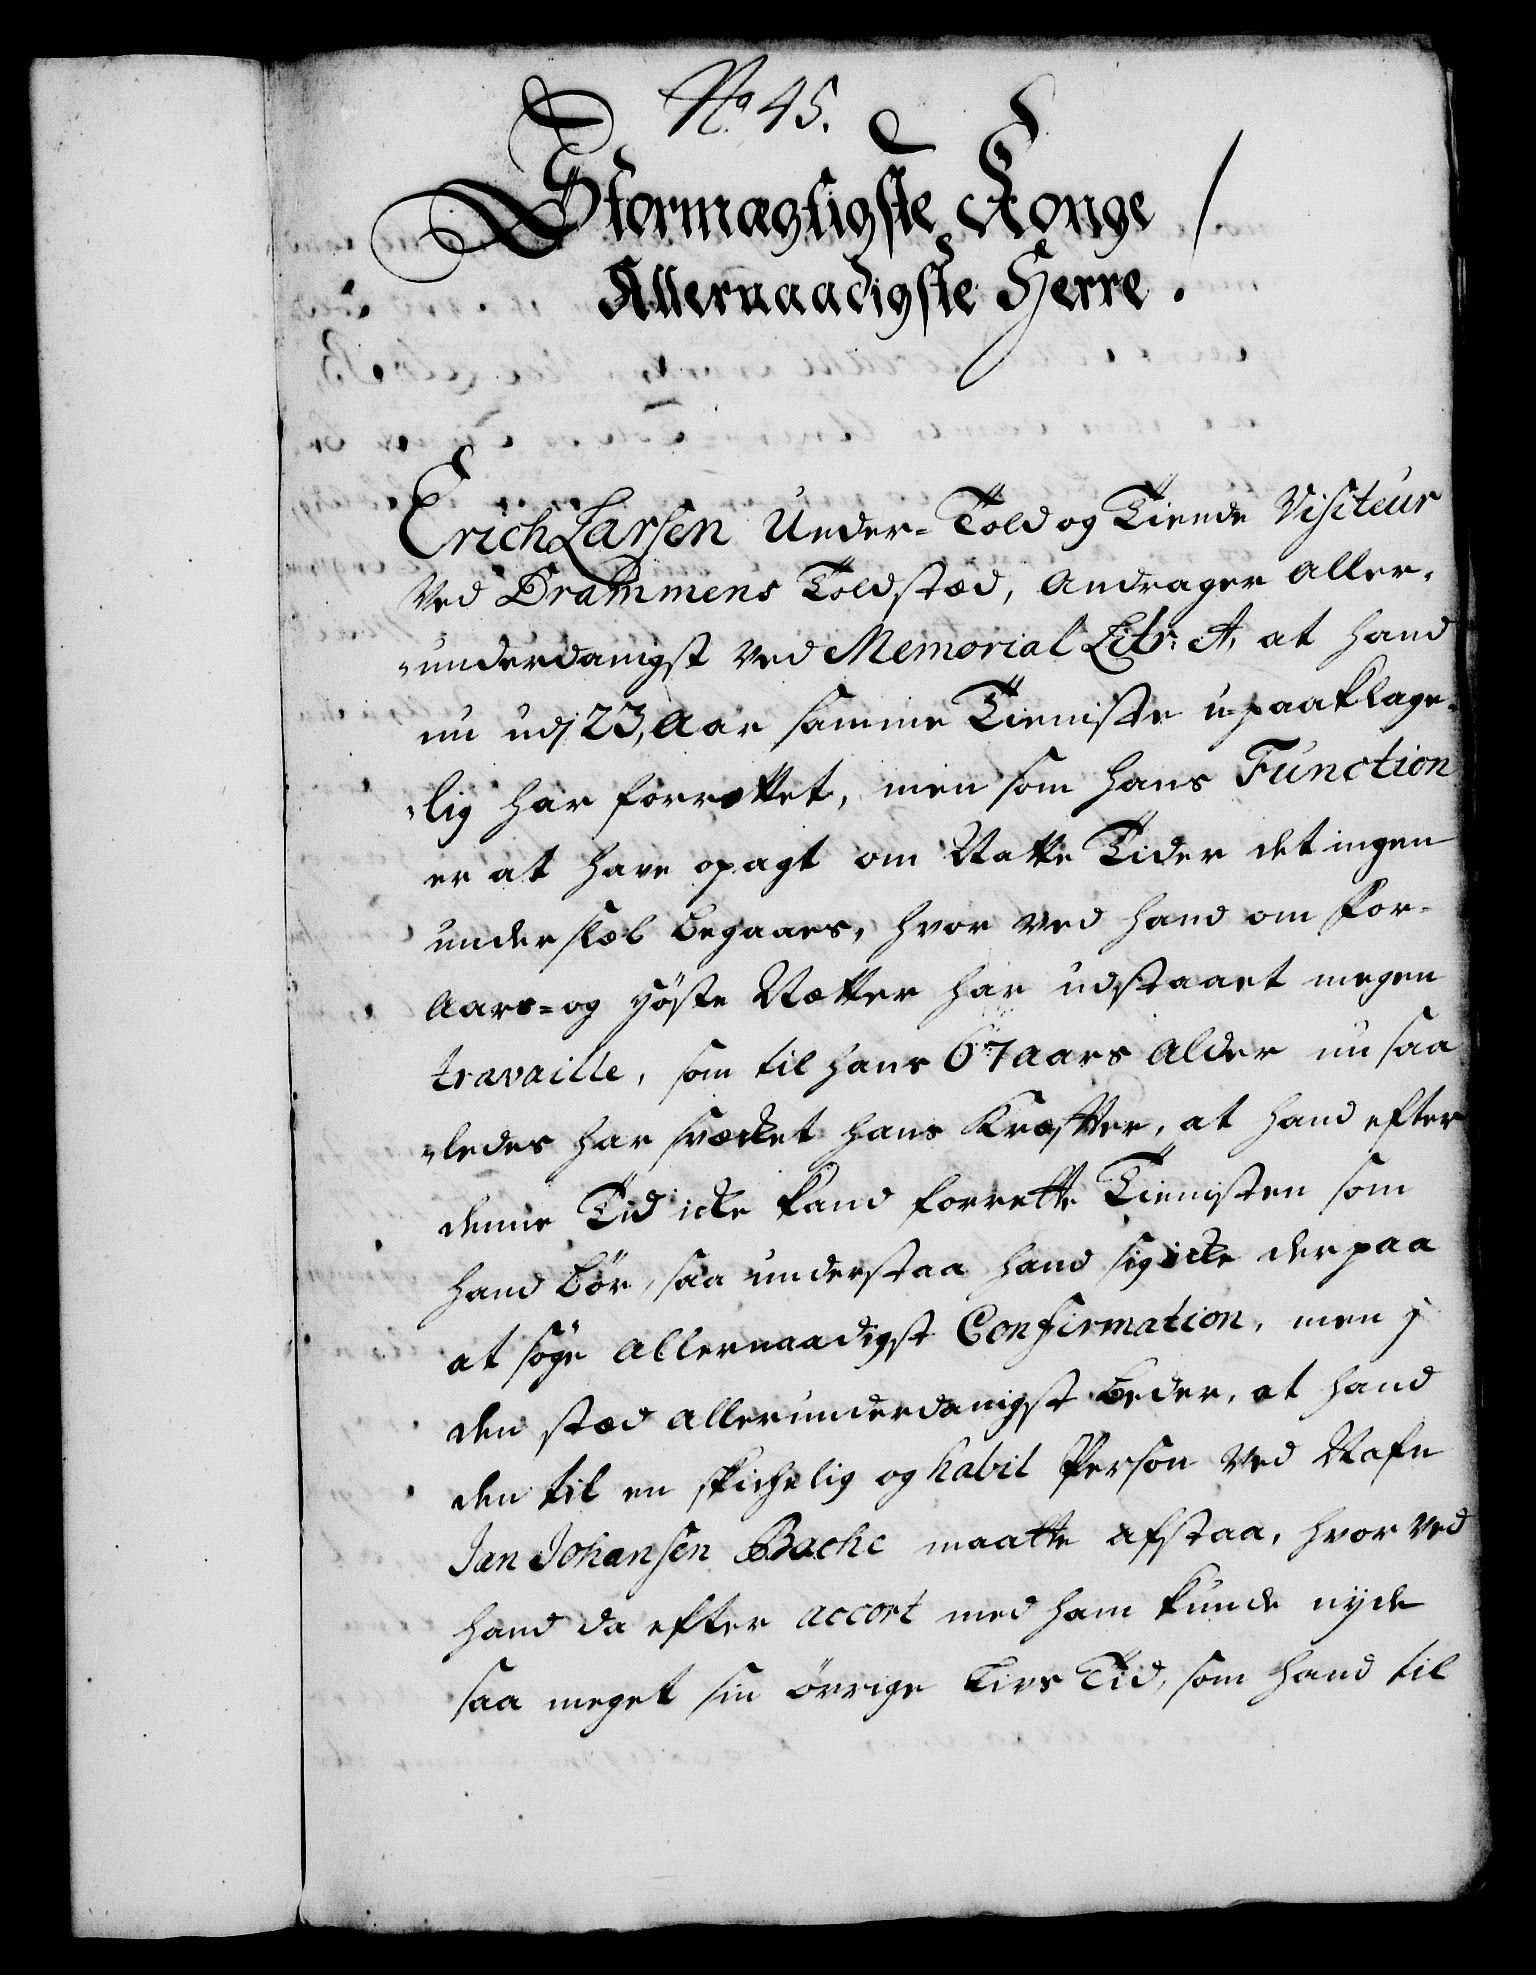 No 45.
Stormægtigste Konge /
Allernaadigste Herre.
Erich Larsen Under-Told og Tiende Visiteur
Ved Drammens Toldstæd, Andrager Aller-
underdanigst Ved Memorial Litr: A, at hand
nu udj 23, Aar samme Tieniste upaaklage-
lig har forrættet, men som hans Function
er at have opagt om Natte Tider det ingen
underslæb begaaes, hvor ved hand om For-
Aars- og Høste Nætter har udstaaet megen
travaille, som til hans 67 Aars Alder nu saa
ledes har svæcket hans Kræfter, at hand efter
denne Tid icke kand forrette Tienisten som
hand bør, saa understaa hand sig icke derpaa
at søge Allernaadigst Confirmation, men j
den stæd allerunderdanigst beder, at hand
den til en skichelig og habil Person Ved Nafn
Jan Johansen Bache maatte afstaa, hvor ved
hand da efter accort med ham kunde nyde
saa meget sin øvrige Livs Tid, som hand til